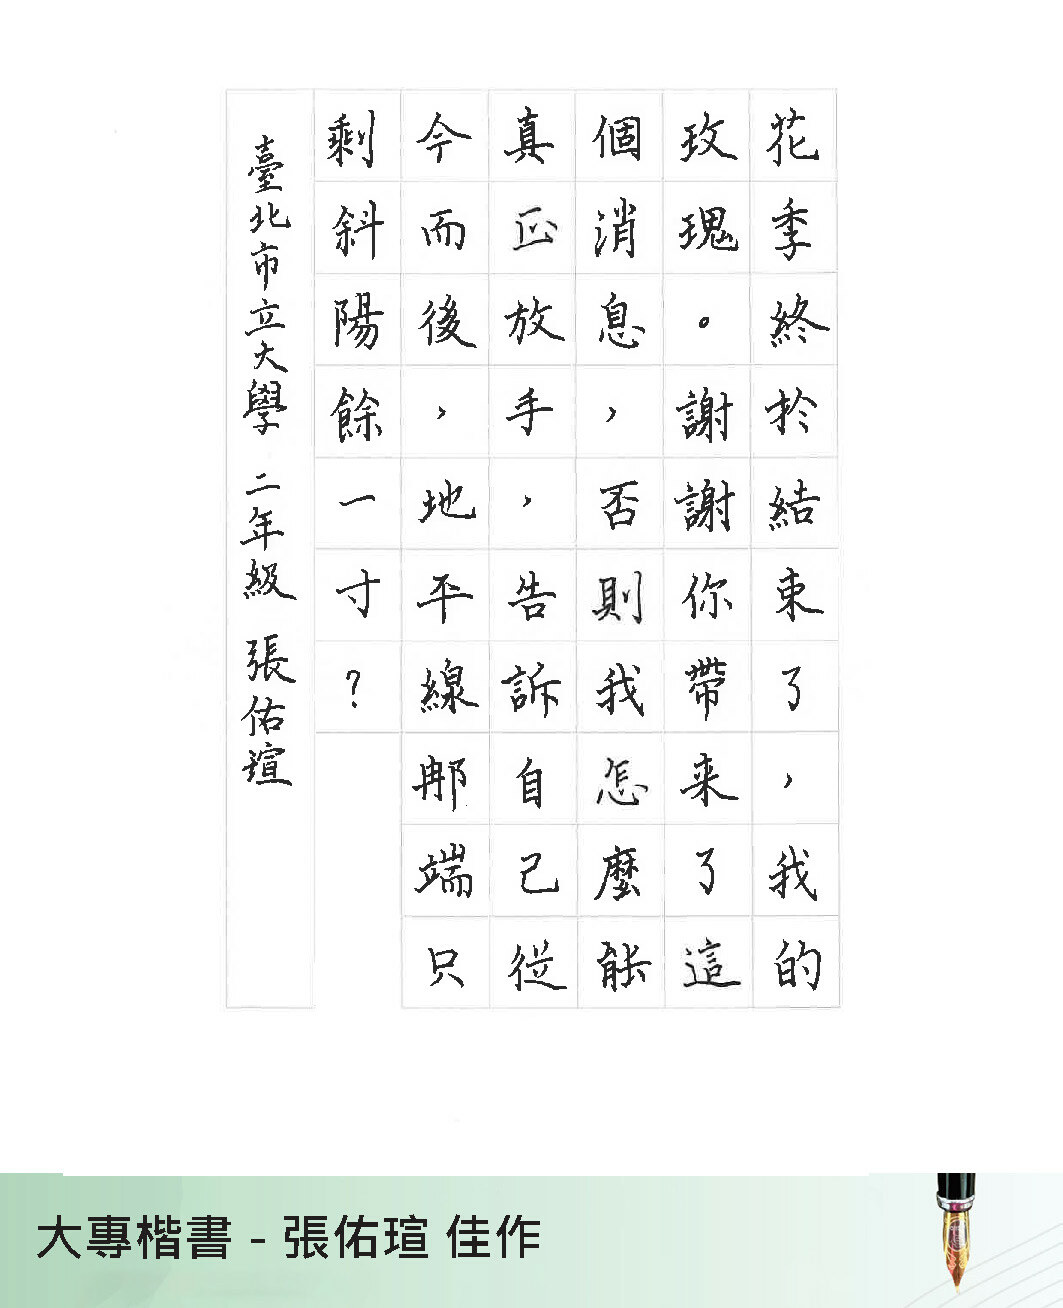 花季終於結束了，我的
玫瑰。謝謝你帶来了這
個消息，否則我怎麼能
真正放手，告訴自己從
今而後，地平線那端只
剩斜陽餘一寸？
臺北市立大學 二年級 張佑瑄
大專楷書 - 張佑瑄 佳作